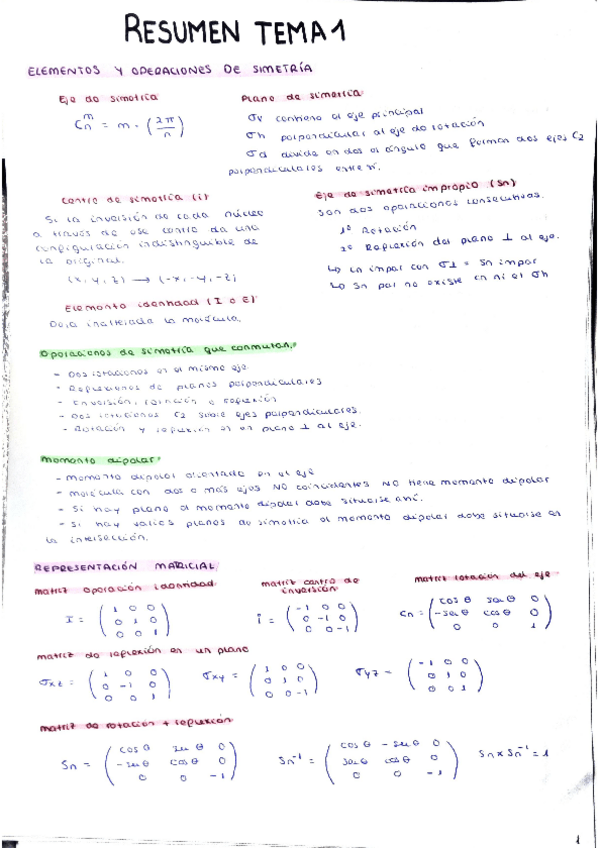 RESUMEN TEMA 1
ELEMENTOS Y OPERACIONES DE SIMETRÍA
Eje de simetría
C_n^m = m · (2π/n)
Plano de simetría
σv contiene al eje principal
σh perpendicular al eje de rotación
σd divide en dos el ángulo que forman dos ejes C2
perpendiculares entre sí.
Centro de simetría (i)
Si la inversión de cada núcleo
a través de ese centro da una
configuración indistinguible de
la original.
(x, y, z) → (-x, -y, -z)
Eje de simetría impropio (Sn)
Son dos operaciones consecutivas.
1º Rotación
2º Reflexión del plano ⊥ al eje.
↳ Cn impar con σ⊥ = Sn impar
↳ Sn par no existe cn ni el σh
Elemento identidad (I o E)
Deja inalterada la molécula.
Operaciones de simetría que conmutan:
- Dos rotaciones en el mismo eje
- Reflexiones de planos perpendiculares
- Inversión, rotación o reflexión
- Dos rotaciones C2 sobre ejes perpendiculares.
- Rotación y reflexión en un plano ⊥ al eje.
Momento dipolar:
- Momento dipolar orientado en el eje
- molécula con dos o más ejes NO coincidentes NO tiene momento dipolar
- Si hay plano el momento dipolar debe situarse ahí.
- Si hay varios planos de simetría el momento dipolar debe situarse en
la intersección.
REPRESENTACIÓN MATRICIAL
matriz operación identidad
I = ( 1 0 0
0 1 0
0 0 1 )
matriz centro de
inversión
i = ( -1 0 0
0 -1 0
0 0 -1 )
matriz rotación del eje
Cn = ( cos θ sen θ 0
-sen θ cos θ 0
0 0 1 )
matriz de reflexión en un plano
σxz = ( 1 0 0
0 -1 0
0 0 1 )
σxy = ( 1 0 0
0 1 0
0 0 -1 )
σyz = ( -1 0 0
0 1 0
0 0 1 )
matriz de rotación + reflexión
Sn = ( cos θ sen θ 0
-sen θ cos θ 0
0 0 -1 )
Sn⁻¹ = ( cos θ -sen θ 0
sen θ cos θ 0
0 0 -1 )
Sn x Sn⁻¹ = 1
1